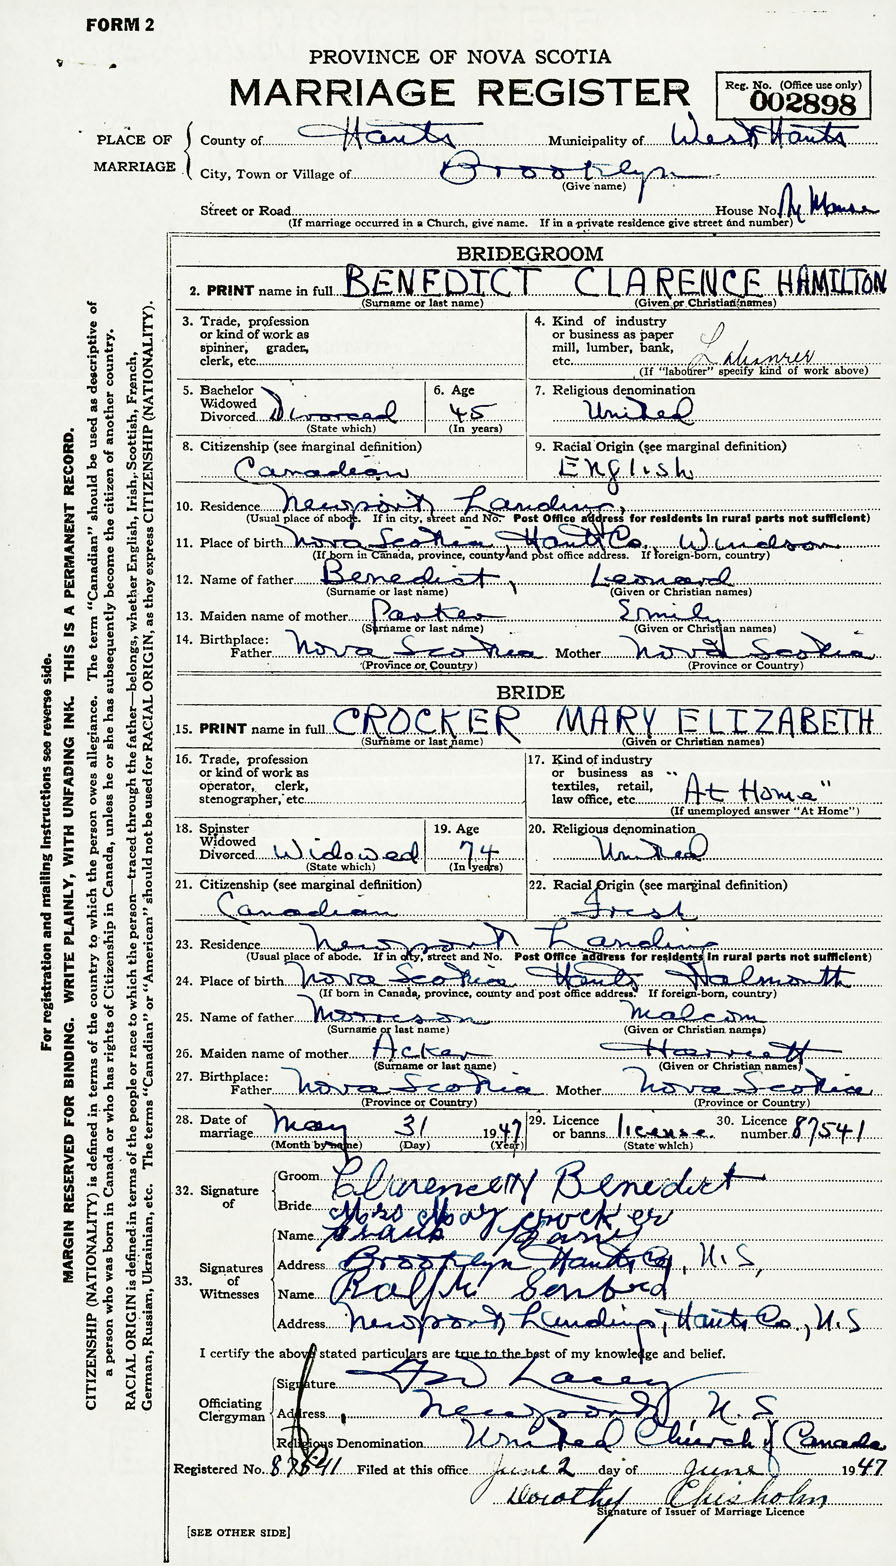 FORM 2
PROVINCE OF NOVA SCOTIA
MARRIAGE REGISTER
Reg. No. (Office use only)
002898
PLACE OF MARRIAGE
County of Hants Municipality of West Hants
City, Town or Village of Brooklyn
(Give name)
Street or Road House No. Manse
(If marriage occurred in a Church, give name. If in a private residence give street and number)
BRIDEGROOM
2. PRINT name in full BENEDICT CLARENCE HAMILTON
(Surname or last name) (Given or Christian names)
3. Trade, profession or kind of work as spinner, grader, clerk, etc.
4. Kind of industry or business as paper mill, lumber, bank, etc. Labourer
(If "labourer" specify kind of work above)
5. Bachelor Widowed Divorced Divorced
(State which)
6. Age 45
(In years)
7. Religious denomination
United
8. Citizenship (see marginal definition)
Canadian
9. Racial Origin (see marginal definition)
English
10. Residence Newport Landing,
(Usual place of abode. If in city, street and No. Post Office address for residents in rural parts not sufficient)
11. Place of birth Nova Scotia, Hants Co., Windsor
(If born in Canada, province, county and post office address. If foreign-born, country)
12. Name of father Benedict, Leonard
(Surname or last name) (Given or Christian names)
13. Maiden name of mother Parker Emily
(Surname or last name) (Given or Christian names)
14. Birthplace:
Father Nova Scotia Mother Nova Scotia
(Province or Country) (Province or Country)
BRIDE
15. PRINT name in full CROCKER MARY ELIZABETH
(Surname or last name) (Given or Christian names)
16. Trade, profession or kind of work as operator, clerk, stenographer, etc.
17. Kind of industry or business as textiles, retail, law office, etc. "At Home"
(If unemployed answer "At Home")
18. Spinster Widowed Divorced Widowed
(State which)
19. Age 74
(In years)
20. Religious denomination
United
21. Citizenship (see marginal definition)
Canadian
22. Racial Origin (see marginal definition)
Irish
23. Residence Newport Landing
(Usual place of abode. If in city, street and No. Post Office address for residents in rural parts not sufficient)
24. Place of birth Nova Scotia Hants Falmouth
(If born in Canada, province, county and post office address. If foreign-born, country)
25. Name of father Morrison Malcom
(Surname or last name) (Given or Christian names)
26. Maiden name of mother Acker Harriett
(Surname or last name) (Given or Christian names)
27. Birthplace:
Father Nova Scotia Mother Nova Scotia
(Province or Country) (Province or Country)
28. Date of marriage May 31 1947
(Month by name) (Day) (Year)
29. Licence or banns license.
(State which)
30. Licence number 87541
32. Signature of
Groom Clarence H Benedict
Bride Mrs May Crocker
33. Signatures of Witnesses
Name Frank
Address Brooklyn Hants Co, N.S,
Name Ralph
Address Newport Landing, Hants Co., N.S
I certify the above stated particulars are true to the best of my knowledge and belief.
Officiating Clergyman
Signature Lacey
Address Newport, N.S
Religious Denomination United Church of Canada
Registered No. 87541 Filed at this office June 2 day of June 1947
Dorothy Chisholm
Signature of Issuer of Marriage Licence
[SEE OTHER SIDE]
For registration and mailing instructions see reverse side.
MARGIN RESERVED FOR BINDING. WRITE PLAINLY, WITH UNFADING INK. THIS IS A PERMANENT RECORD.
CITIZENSHIP (NATIONALITY) is defined in terms of the country to which the person owes allegiance. The term "Canadian" should be used as descriptive of
a person who was born in Canada or who has rights of Citizenship in Canada, unless he or she has subsequently become the citizen of another country.
RACIAL ORIGIN is defined in terms of the people or race to which the person—traced through the father—belongs, whether English, Irish, Scottish, French,
German, Russian, Ukrainian, etc. The terms "Canadian" or "American" should not be used for RACIAL ORIGIN, as they express CITIZENSHIP (NATIONALITY).